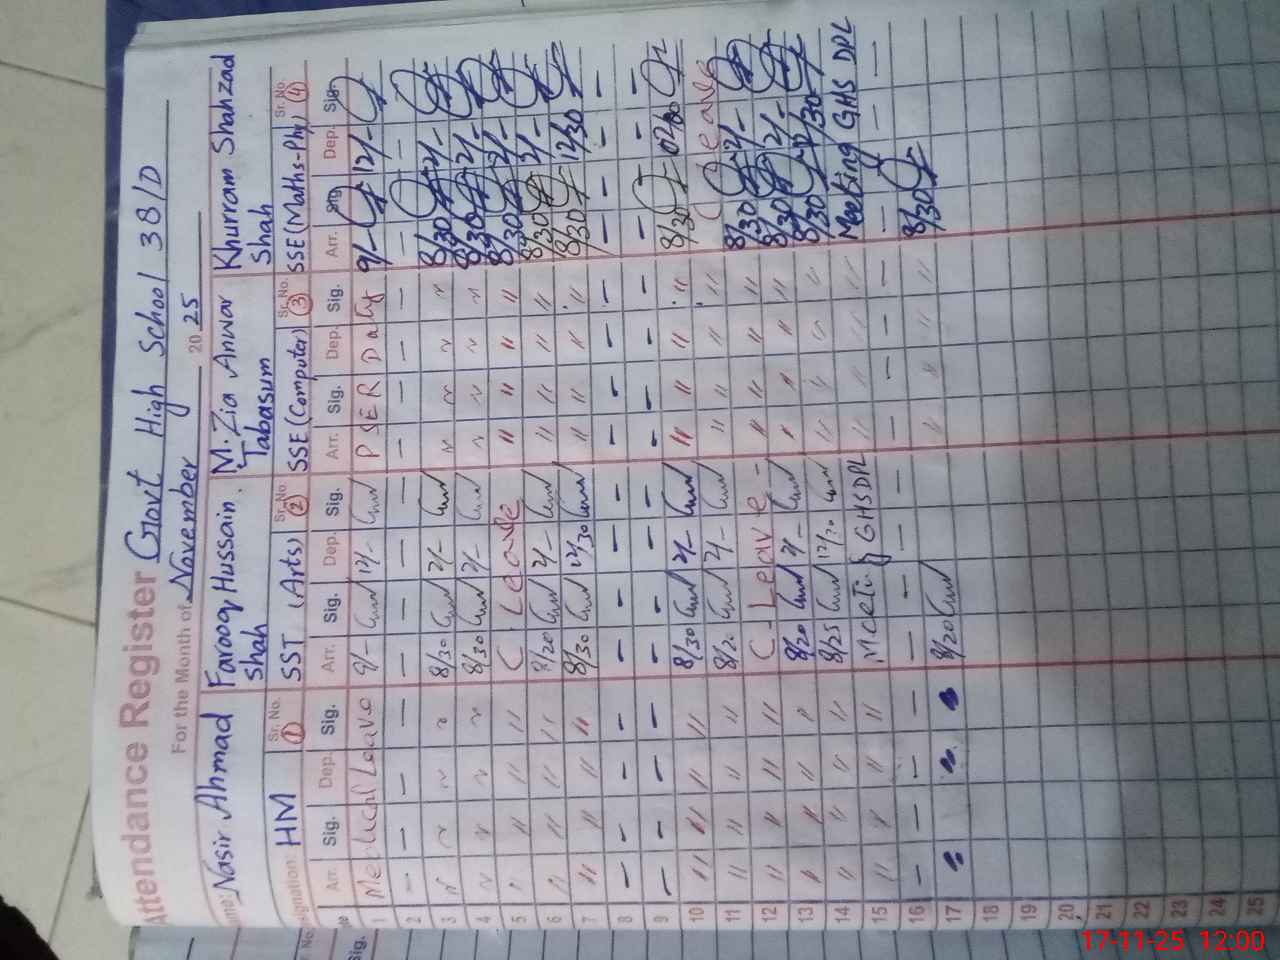 Attendance Register Govt High School 38/D
For the Month of November 2025
Nasir Ahmad Farooq Hussain Shah M. Zia Anwar Tabasum Khurram Shahzad Shah
HM Sr. No. 1 SST (Arts) Sr. No. 2 SSE (Computer) Sr. No. 3 SSE (Maths-Phy) Sr. No. 4
Arr. Sig. Dep. Sig. Arr. Sig. Dep. Sig. Arr. Sig. Dep. Sig. Arr. Sig. Dep. Sig.
1 Medical Leave 9/- 12/- PSER Duty 9/- 12/-
2 - - - - - - - - - - - - - -
3 " " " " 8/30 2/- " " " " 8/30 2/-
4 " " " " 8/30 2/- " " " " 8/30 2/-
5 " " " " C Leave " " " " 8/30 2/-
6 " " " " 8/20 2/- " " " " 8/30 2/-
7 " " " " 8/30 12/30 " " " " 8/30 12/30
8 - - - - - - - - - - - - - - - -
9 - - - - - - - - - - - - - - -
10 " " " " 8/30 2/- " " " " 8/30 02/00
11 " " " " 8/20 2/- " " " " C Leave
12 " " " " C - Leave - " " " " 8/30 2/-
13 " " " " 8/20 2/- " " " " 8/30 2/-
14 " " " " 8/25 12/30 " " " " 8/30 12/30
15 " " " " Meeting GHS DPL " " " " Meeting GHS DPL
16 - - - - - - - - - - - - -
17 " " " 8/20 " " " " 8/30
18
19
20
21
22
23
24
25
17-11-25 12:00